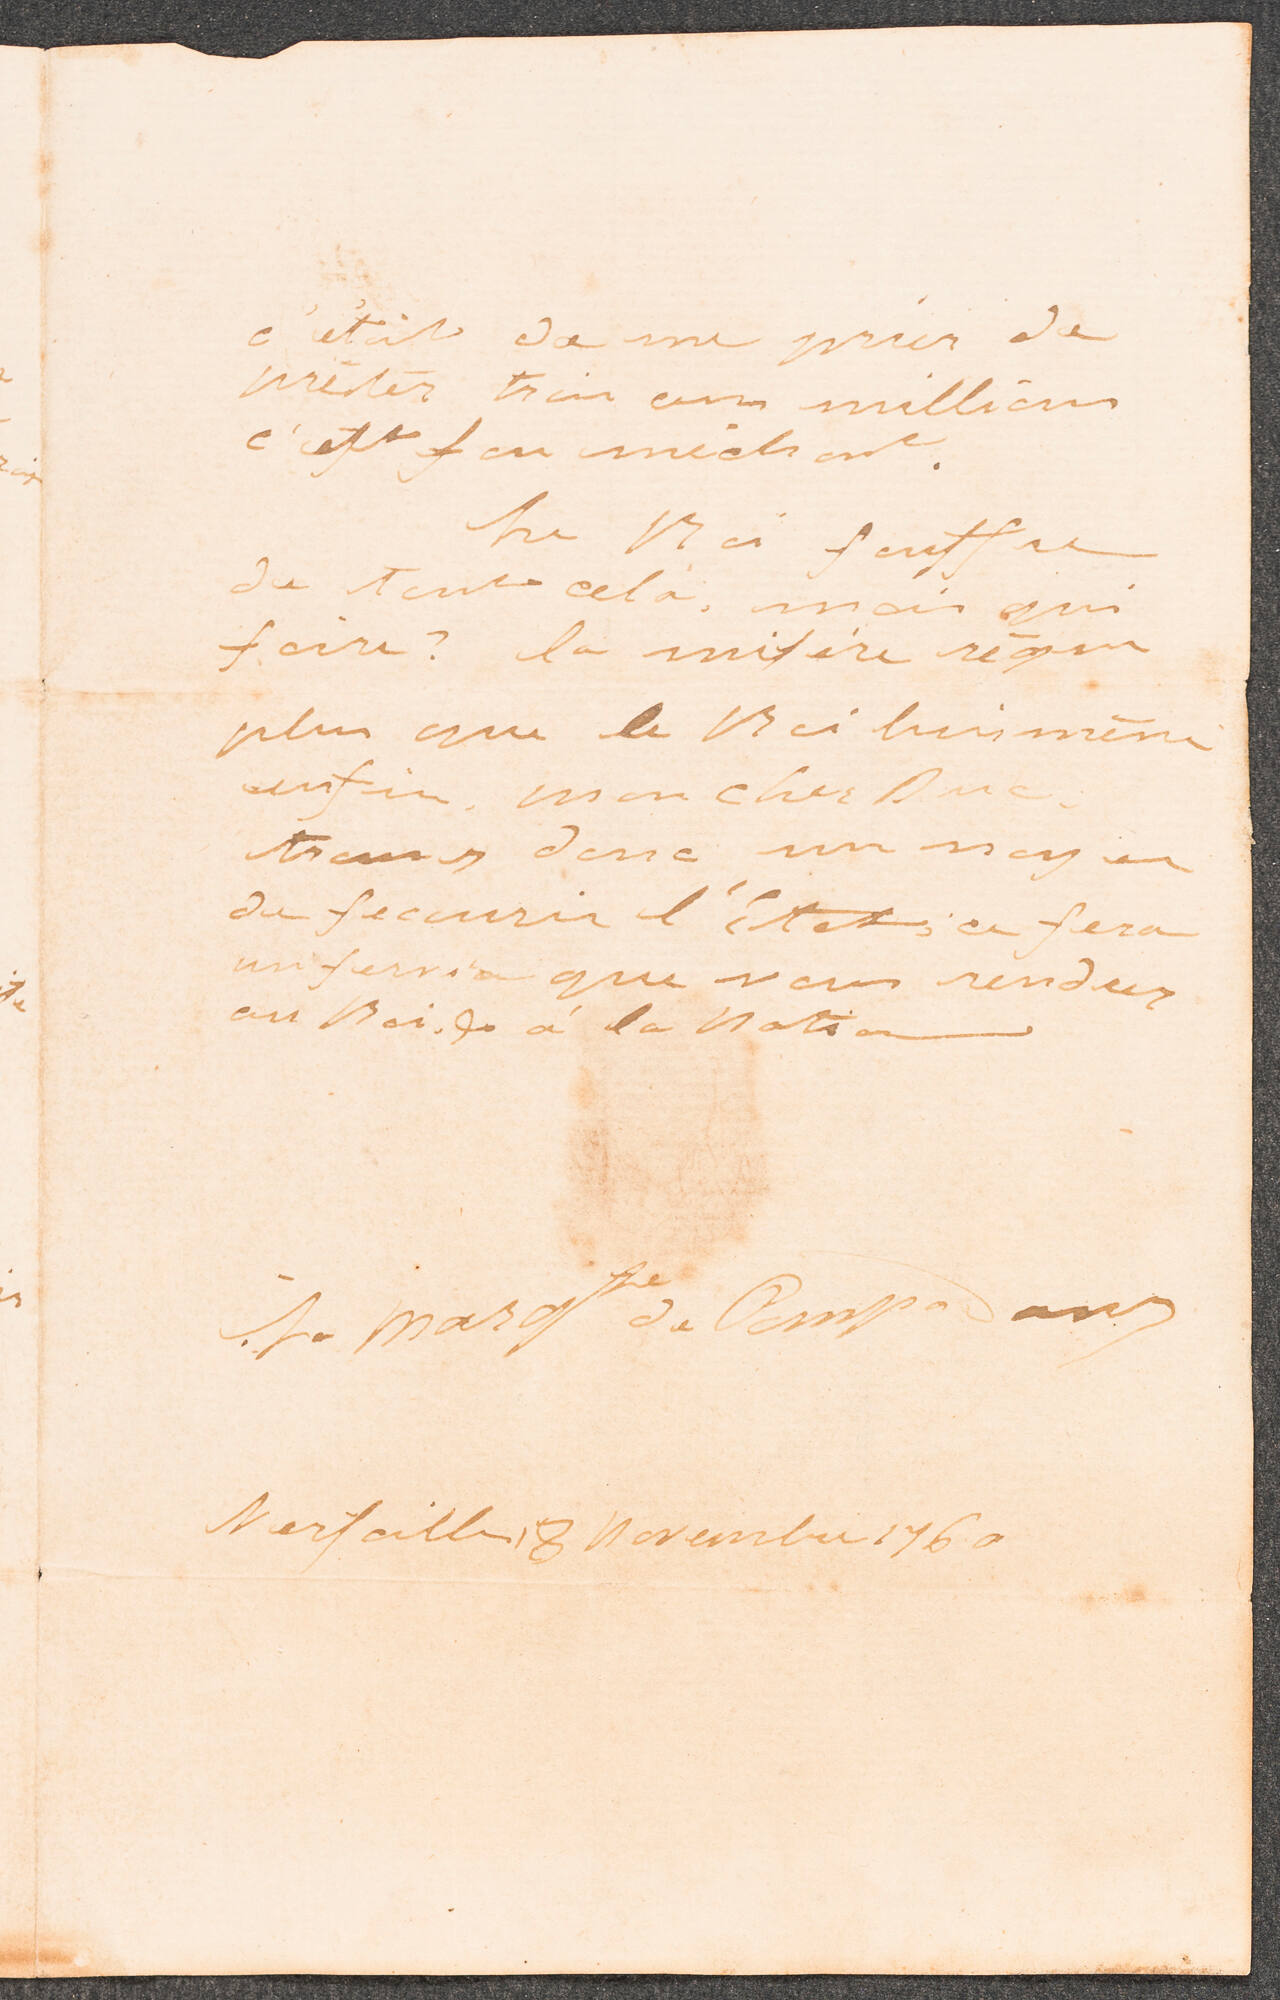 c'était de me prier de
prêter trois cens millions
c'est fou méchant.
Le Roi souffre
de tout celà, mais qui
faire? la misére régne
plus que le Roi lui même
enfin, mon cher Duc,
trouvez donc un moyen
de secourir l'État, ce sera
un service que vous rendrez
au Roi. & à la Nation
La Marq.se de Pompadour
Versailles 18 Novembre 1760